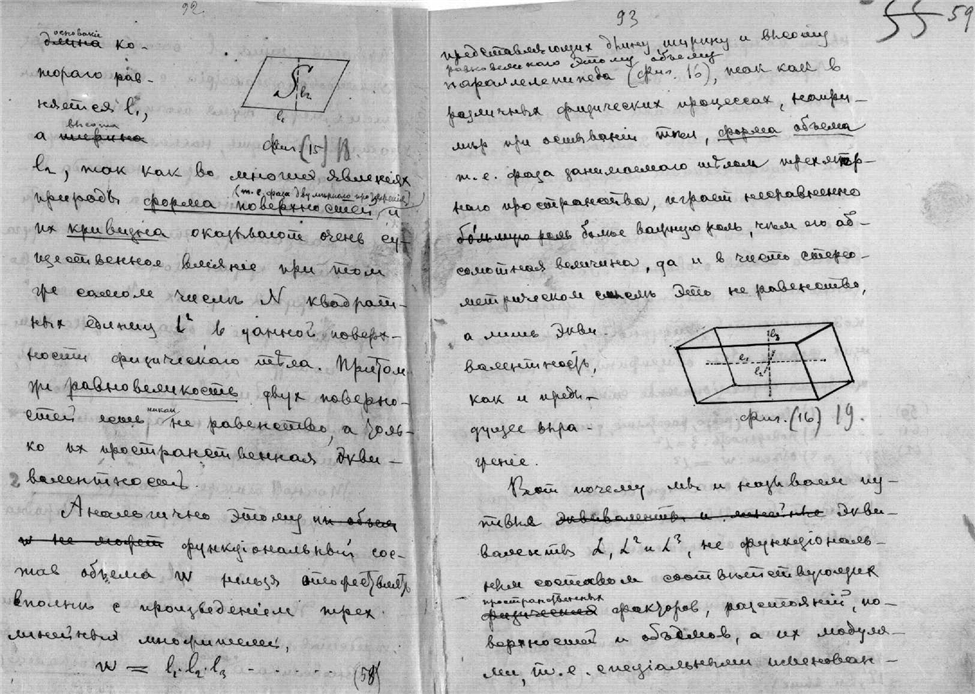 92.
основаніе
длина ко-
тораго рав-
няется l₁,
высота
а ширина
l₂
l₁
фиг. (15) 18.
l₂, так как во многих явленіях
(т. е. фаза двумѣрнаго пространства)
природы форма поверхностей, и
их кривизна оказывают очень су-
щественное вліяніе при том
же самом числѣ N квадрат-
ных единиц l² в данной поверх-
ности физическаго тѣла. Притом-
же равновеликость двух поверхно-
стей есть никак не равенство, а толь-
ко их пространственная экви-
валентность.
Аналогично этому ни объем
w не может функціональный сос-
тав объема w нельзя отожествлять
вполнѣ с произведеніем трех
линейных множителей,
w = l₁·l₂·l₃ . . . . . . . . (58)
93
59
представляющих длину, ширину и высоту
равновеликаго этому объему
параллелепипеда (фиг. 16), так как в
различных физических процессах, напри-
мѣр при остываніи тѣл, форма объема
т. е. фаза занимаемаго тѣлом трехмѣр-
наго пространства, играет несравненно
большую роль болѣе важную роль, чѣм его аб-
солютная величина, да и в чисто стерео-
метрическом смыслѣ это не равенство,
а лишь экви-
валентность,
как и преды-
дущее выра-
женіе.
l₃
l₁
l₂
фиг. (16) 19.
Вот почему мы и называем
эквиваленты и линейные экви-
валенты L, L² и L³, не функціональ-
ным составом соотвѣтствующих
пространственных
физических факторов, разстояній, по-
верхностей и объемов, а их модуля-
ми, т. е. спеціальными именован-